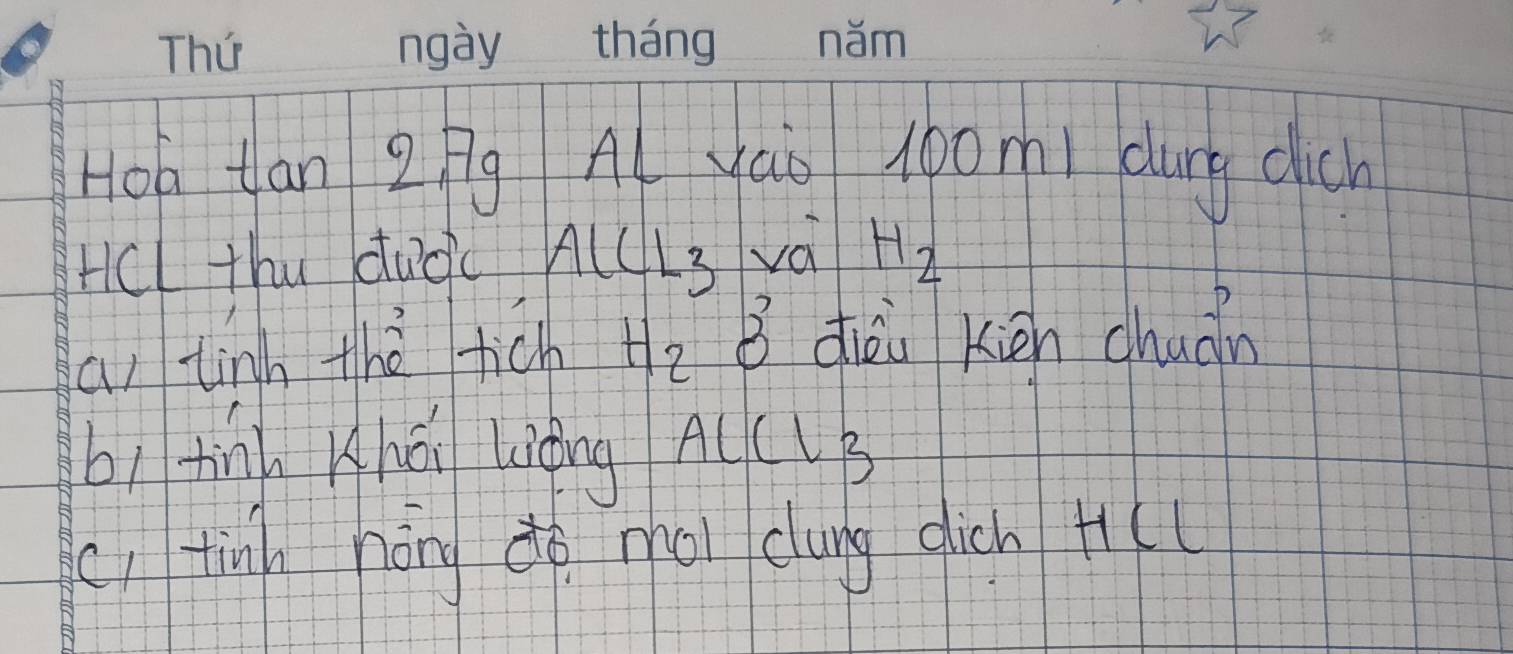 Thứ ngày tháng năm
Hoà tan 2,7g Al vào 100ml dung dịch
HCl thu được AlCl3 và H2
a/ tính thể tích H2 ở điều kiện chuẩn
b/ tính khối lượng AlCl3
c/ tính nồng độ mol dung dịch HCl